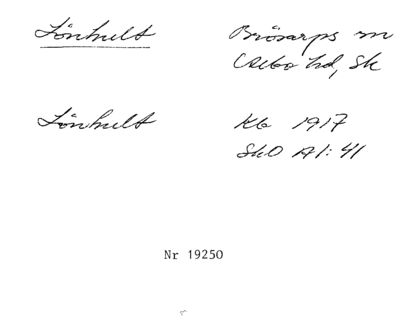 Lönhult Brösarps sn
Albo hd, Sk
Lönhult Kb 1917
SkO A1:41
Nr 19250